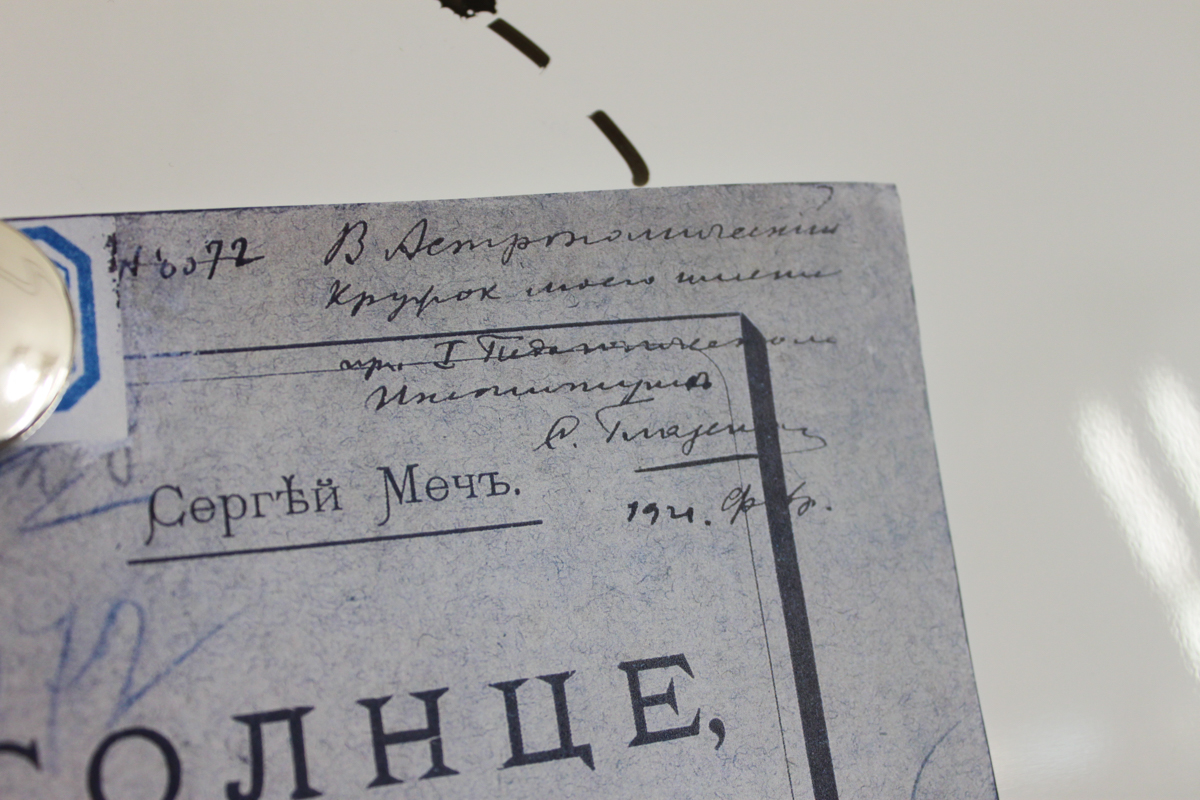 В Астрономический
Кружок моего имени
при I Педагогическом
Институте
С. Глазенап
1921. Фев.
Сергѣй Мечъ.
72
СОЛНЦЕ,